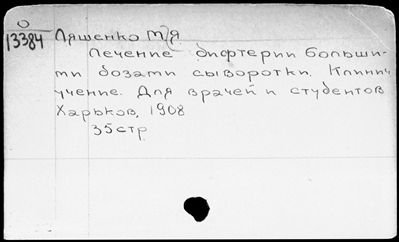 О
13384 Ляшенко М.Я.
Лечение дифтерии больши-
ми дозами сыворотки. Клинич
учение. Для врачей и студентов
Харьков, 1908
35стр